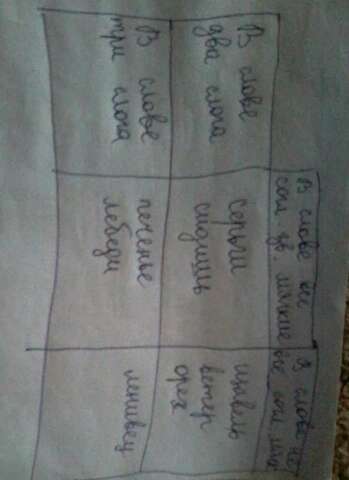 В слове все
согл зв. мягкие
В слове не
все согл мяг
В слове
два слога
серьги
сидишь
щавель
ветер
орех
В слове
три слога
печенье
лебеди
ленивец